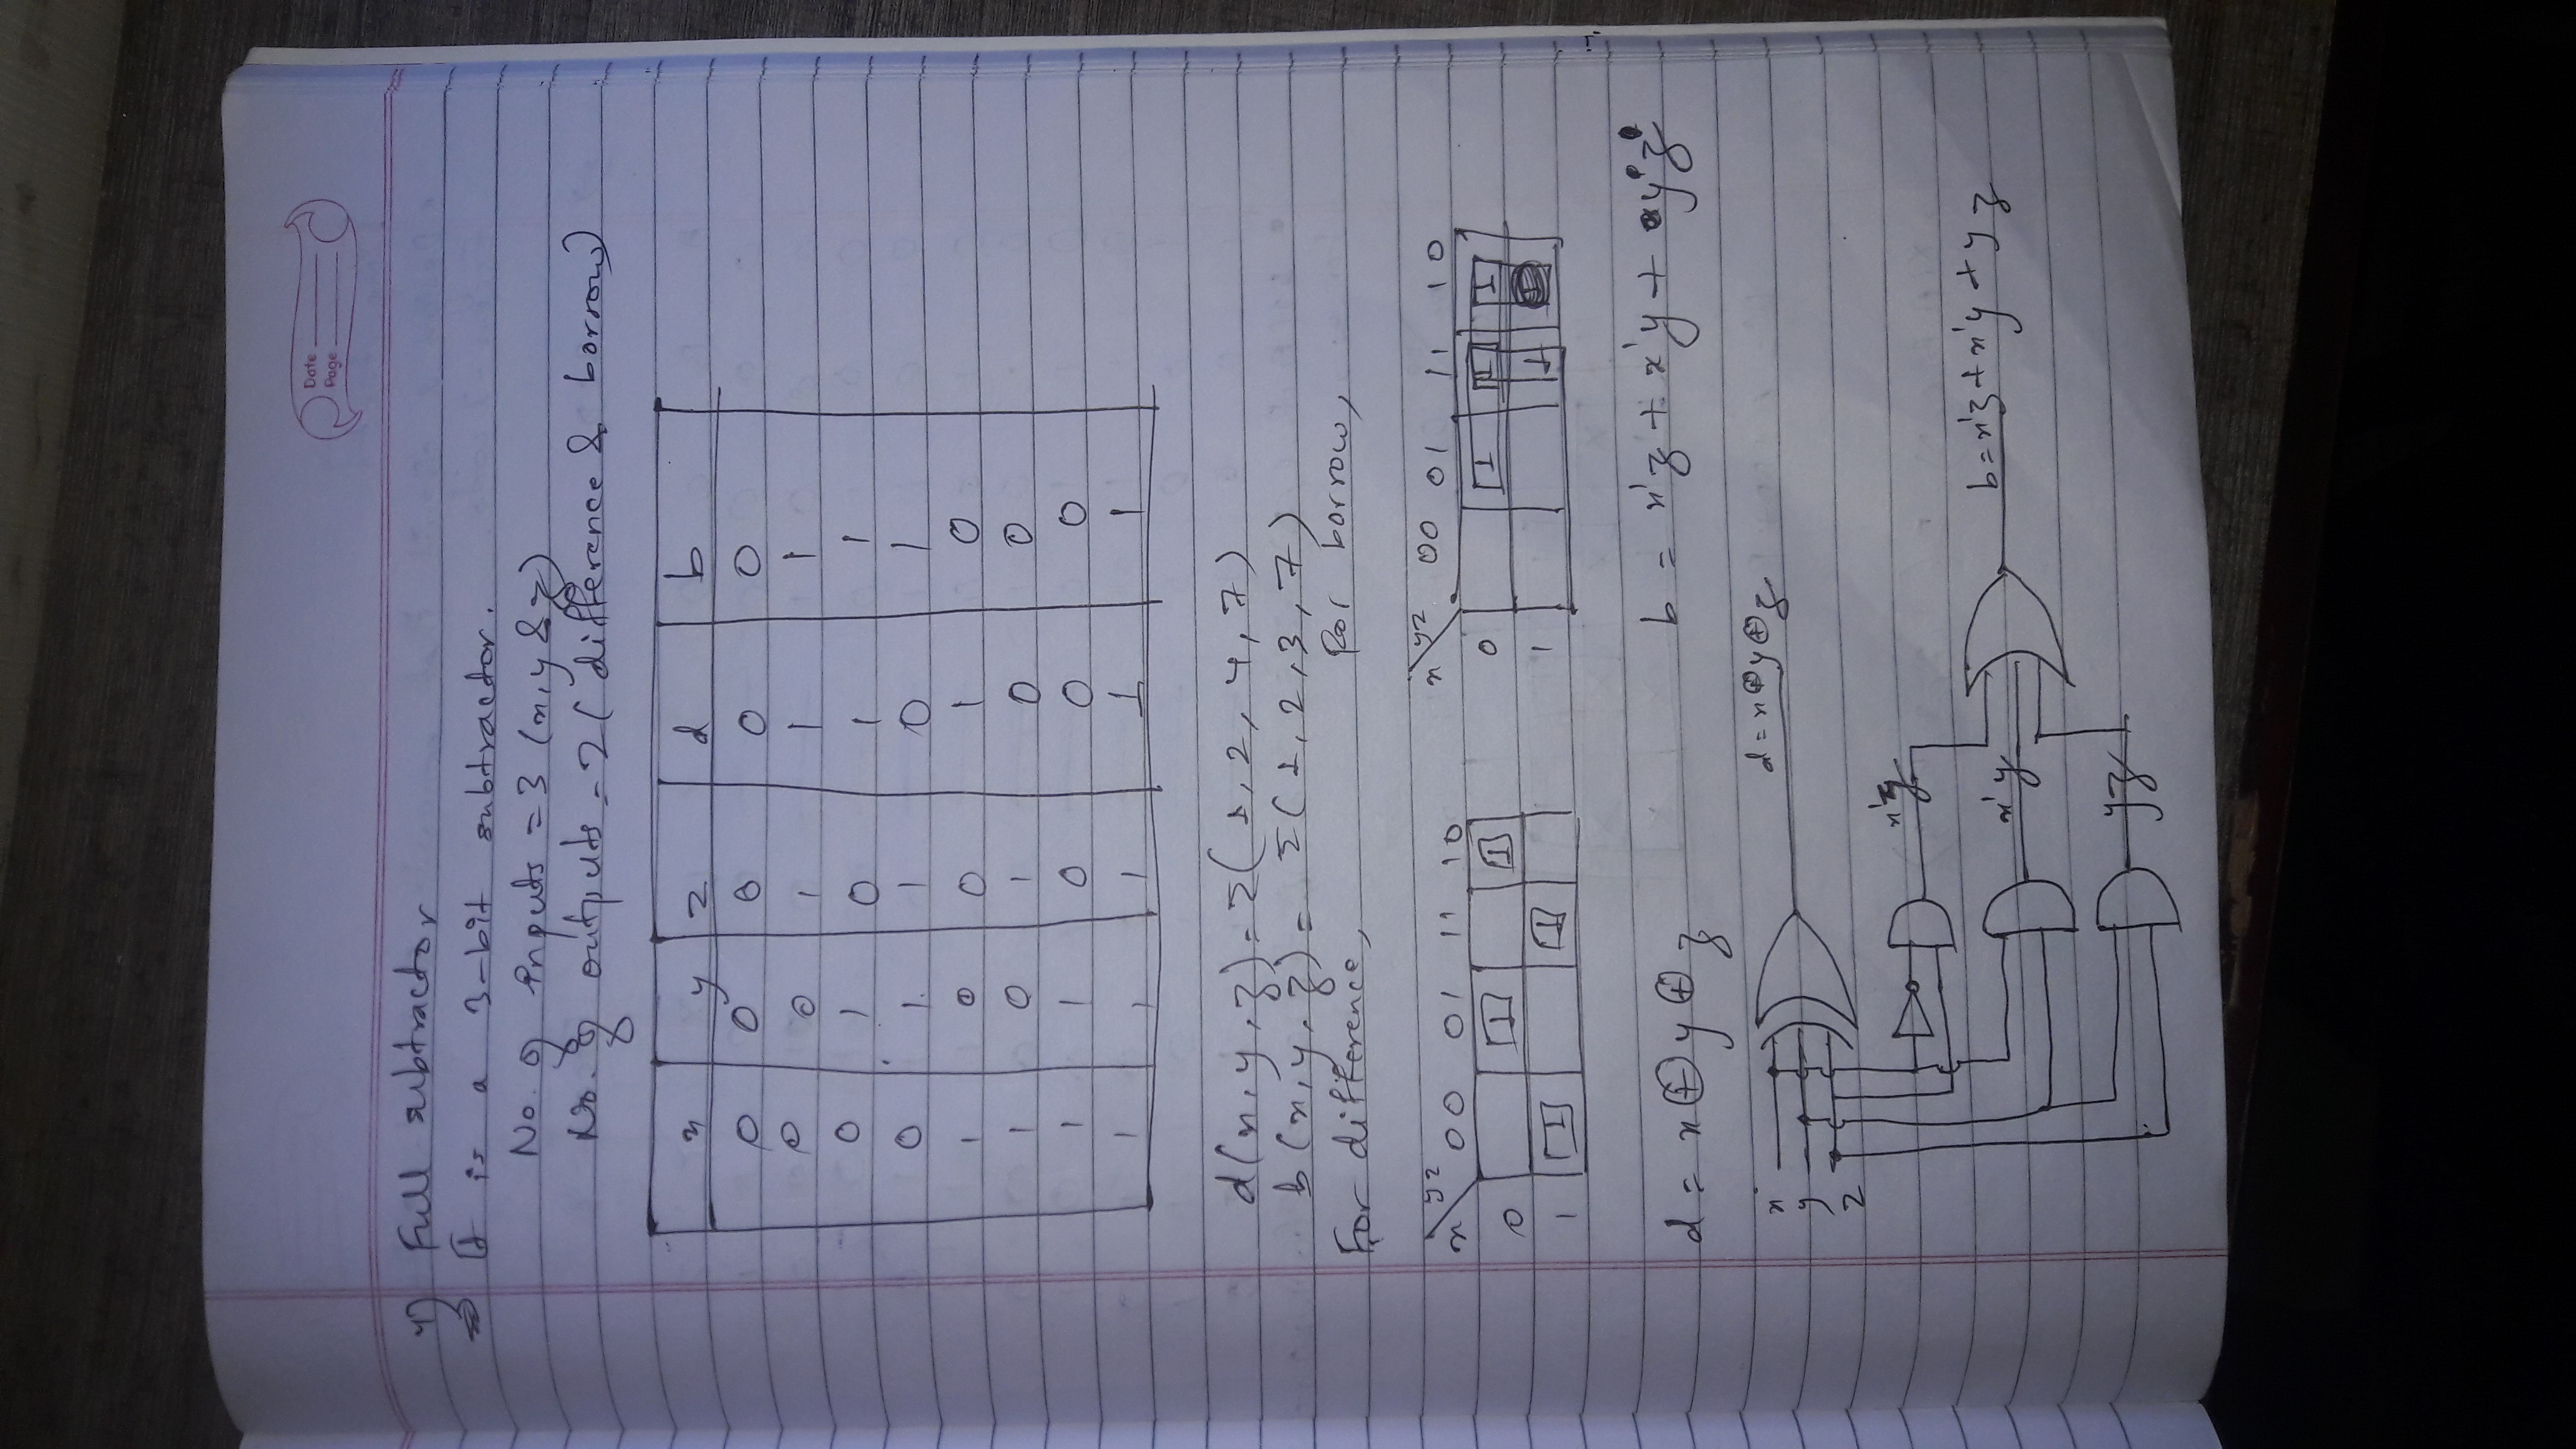 Date
Page
4) Full subtractor
⇒ It is a 3-bit subtractor.
No. of inputs = 3 (x, y & z)
No. of outputs = 2 (difference & borrow)
x y z d b
0 0 0 0 0
0 0 1 1 1
0 1 0 1 1
0 1 1 0 1
1 0 0 1 0
1 0 1 0 0
1 1 0 0 0
1 1 1 1 1
d(x, y, z) = Σ(1, 2, 4, 7)
b(x, y, z) = Σ(1, 2, 3, 7)
For difference, For borrow,
x yz 00 01 11 10
0 1 1
1 1 1
x yz 00 01 11 10
0 1 1 1
1 1
d = x ⊕ y ⊕ z
b = x'z + x'y + yz
x
y
z
d = x ⊕ y ⊕ z
x'z
x'y
yz
b = x'z + x'y + yz